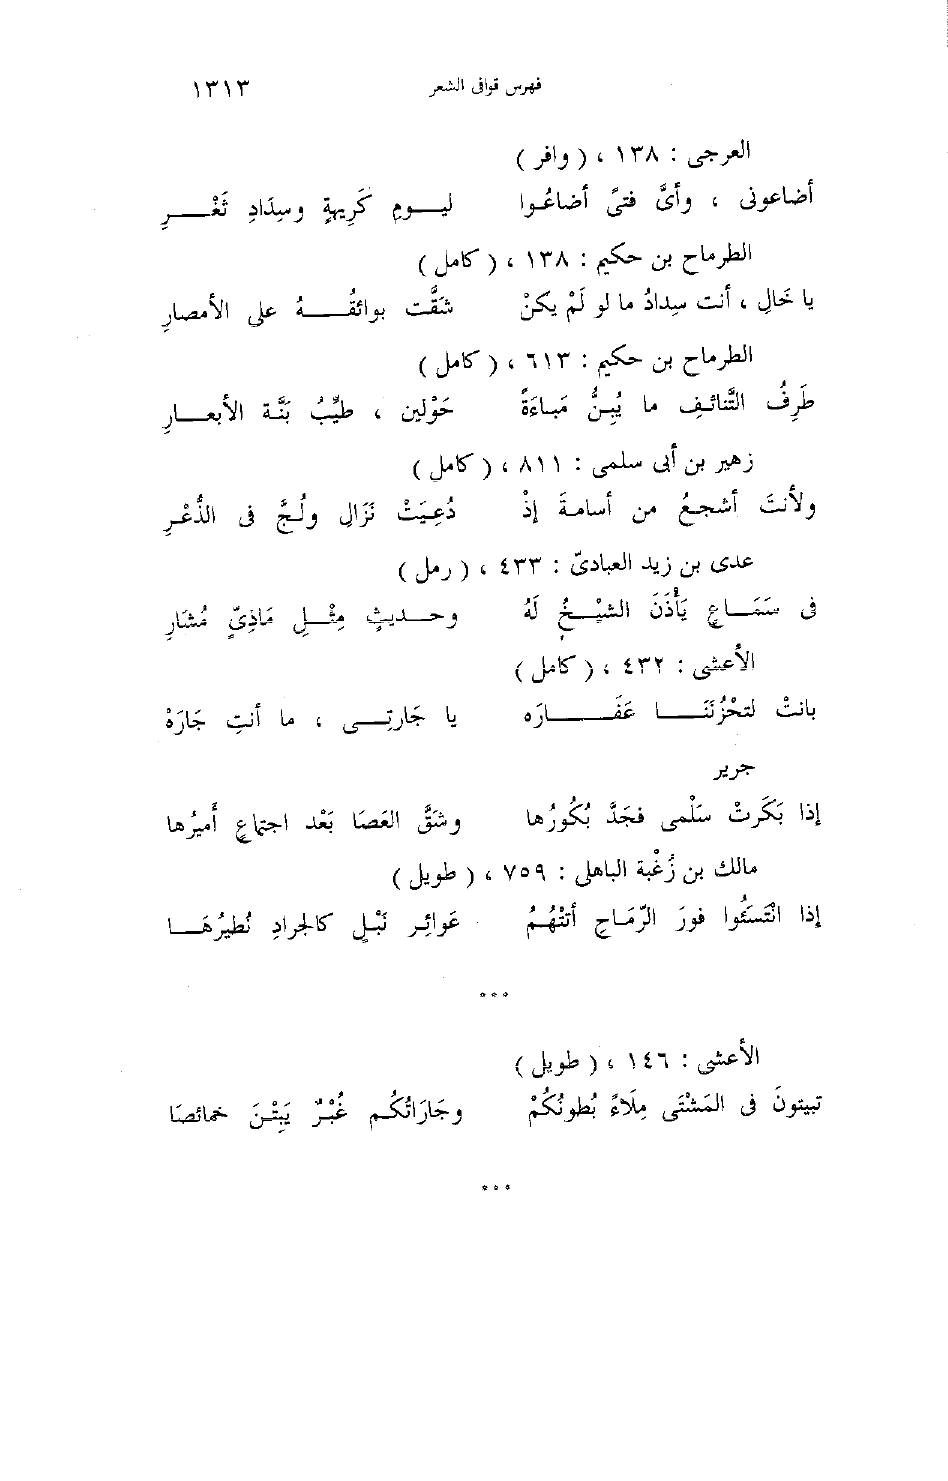 فهرس قوافى الشعر ١٣١٣
العرجى : ١٣٨ ، ( وافر )
أضاعونى ، وأىَّ فتىً أضاعُوا ليــوم كَرِيهةٍ وسِدَادِ ثَغْــرِ
الطرماح بن حكيم : ١٣٨ ، ( كامل )
يا خَالِ ، أنت سِدادُ ما لو لَمْ يكنْ شَقَّت بوائقُــهُ على الأمصارِ
الطرماح بن حكيم : ٦١٣ ، ( كامل )
طَرِفُ التَّنائفِ ما يُبِنُّ مَباءَةً حَوْلين ، طيِّبُ بَنَّة الأبعــارِ
زهير بن أبى سلمى : ٨١١ ، ( كامل )
ولأنتَ أشجعُ من أسامةَ إذْ دُعِيَتْ نَزَالِ ولُجَّ فى الذُّعْرِ
عدى بن زيد العبادىّ : ٤٣٣ ، ( رمل )
فى سَمَــاعٍ يَأْذَنَ الشيْــخُ لَهُ وحــديثٍ مِثْــلِ مَاذِىٍّ مُشَارِ
الأعشى : ٤٣٢ ، ( كامل )
بانتْ لتحْزُنَنَــا عَفَــارَه يا جَارتِــى ، ما أنتِ جَارَهْ
جرير
إذا بَكَرتْ سَلْمى فجَدَّ بُكُورُها وشَقَّ العَصَا بَعْد اجتماعٍ أميرُها
مالك بن زُغْبة الباهلى : ٧٥٩ ، ( طويل )
إذا انْتَسَئُوا فورَ الرّمَاحِ أتتْهُمُ عَوائِر نَبْلٍ كالجرادِ نُطيرُهَــا
***
الأعشى : ١٤٦ ، ( طويل )
تبيتونَ فى المَشْتَى مِلَاءً بُطونُكُمْ وجَارَاتُكُم غُبْرٌ يَبِتْنَ خمائصَا
***